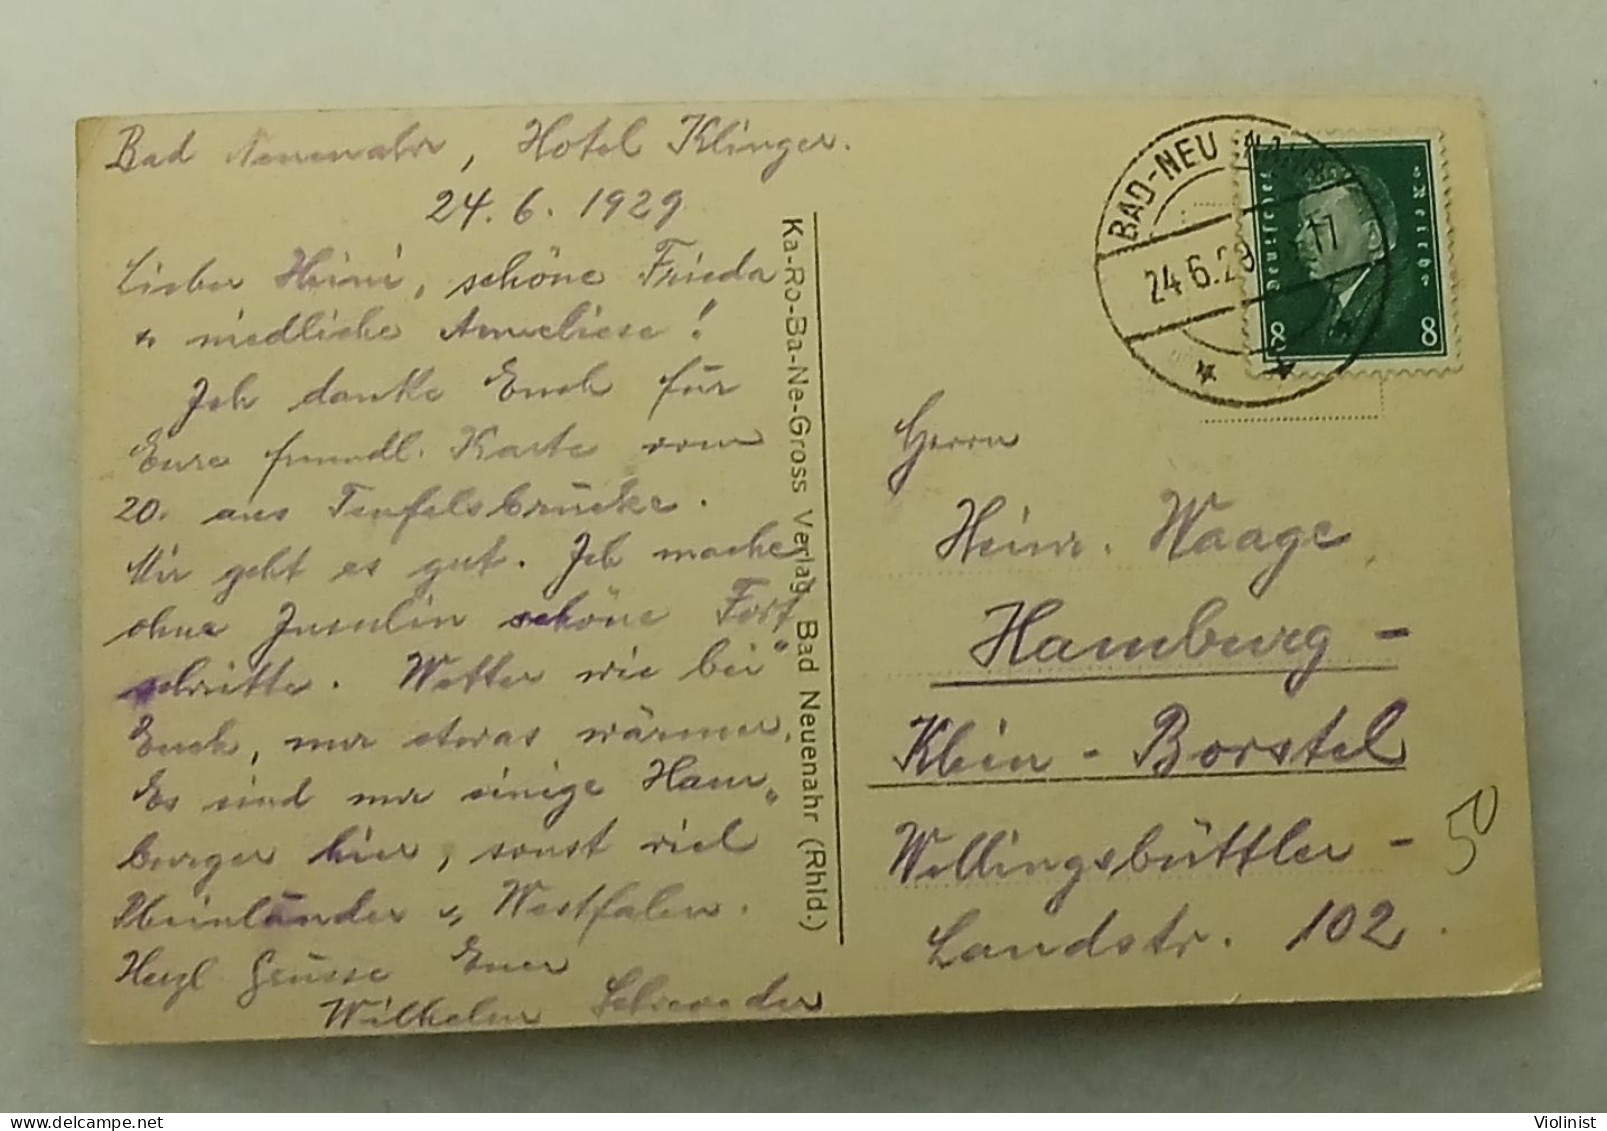 Bad Neuenahr, Hotel Klinger.
24.6.1929
Lieber Heini, schöne Frieda
u. niedliche Anneliese!
Ich danke Euch für
Eure freundl. Karte vom
20. aus Teufelsbrücke.
Mir geht es gut. Ich mache
ohne Insulin schöne Fort„
schritte. Wetter wie bei
Euch, nur etwas wärmer.
Es sind nur einige Ham„
burger hier, sonst viel
Rheinländer u. Westfalen.
Herzl Grüsse Euer
Wilhelm
Ka-Ro-Ba-Ne-Gross Verlag, Bad Neuenahr (Rhld.)
BAD-NEUENAHR
24.6.29 17
Deutsches Reich
8 8
Herrn
Heinr. Waage
Hamburg-
Klein-Borstel
Wellingsbüttler-
Landstr. 102.
50
delcampe.net
Violinist